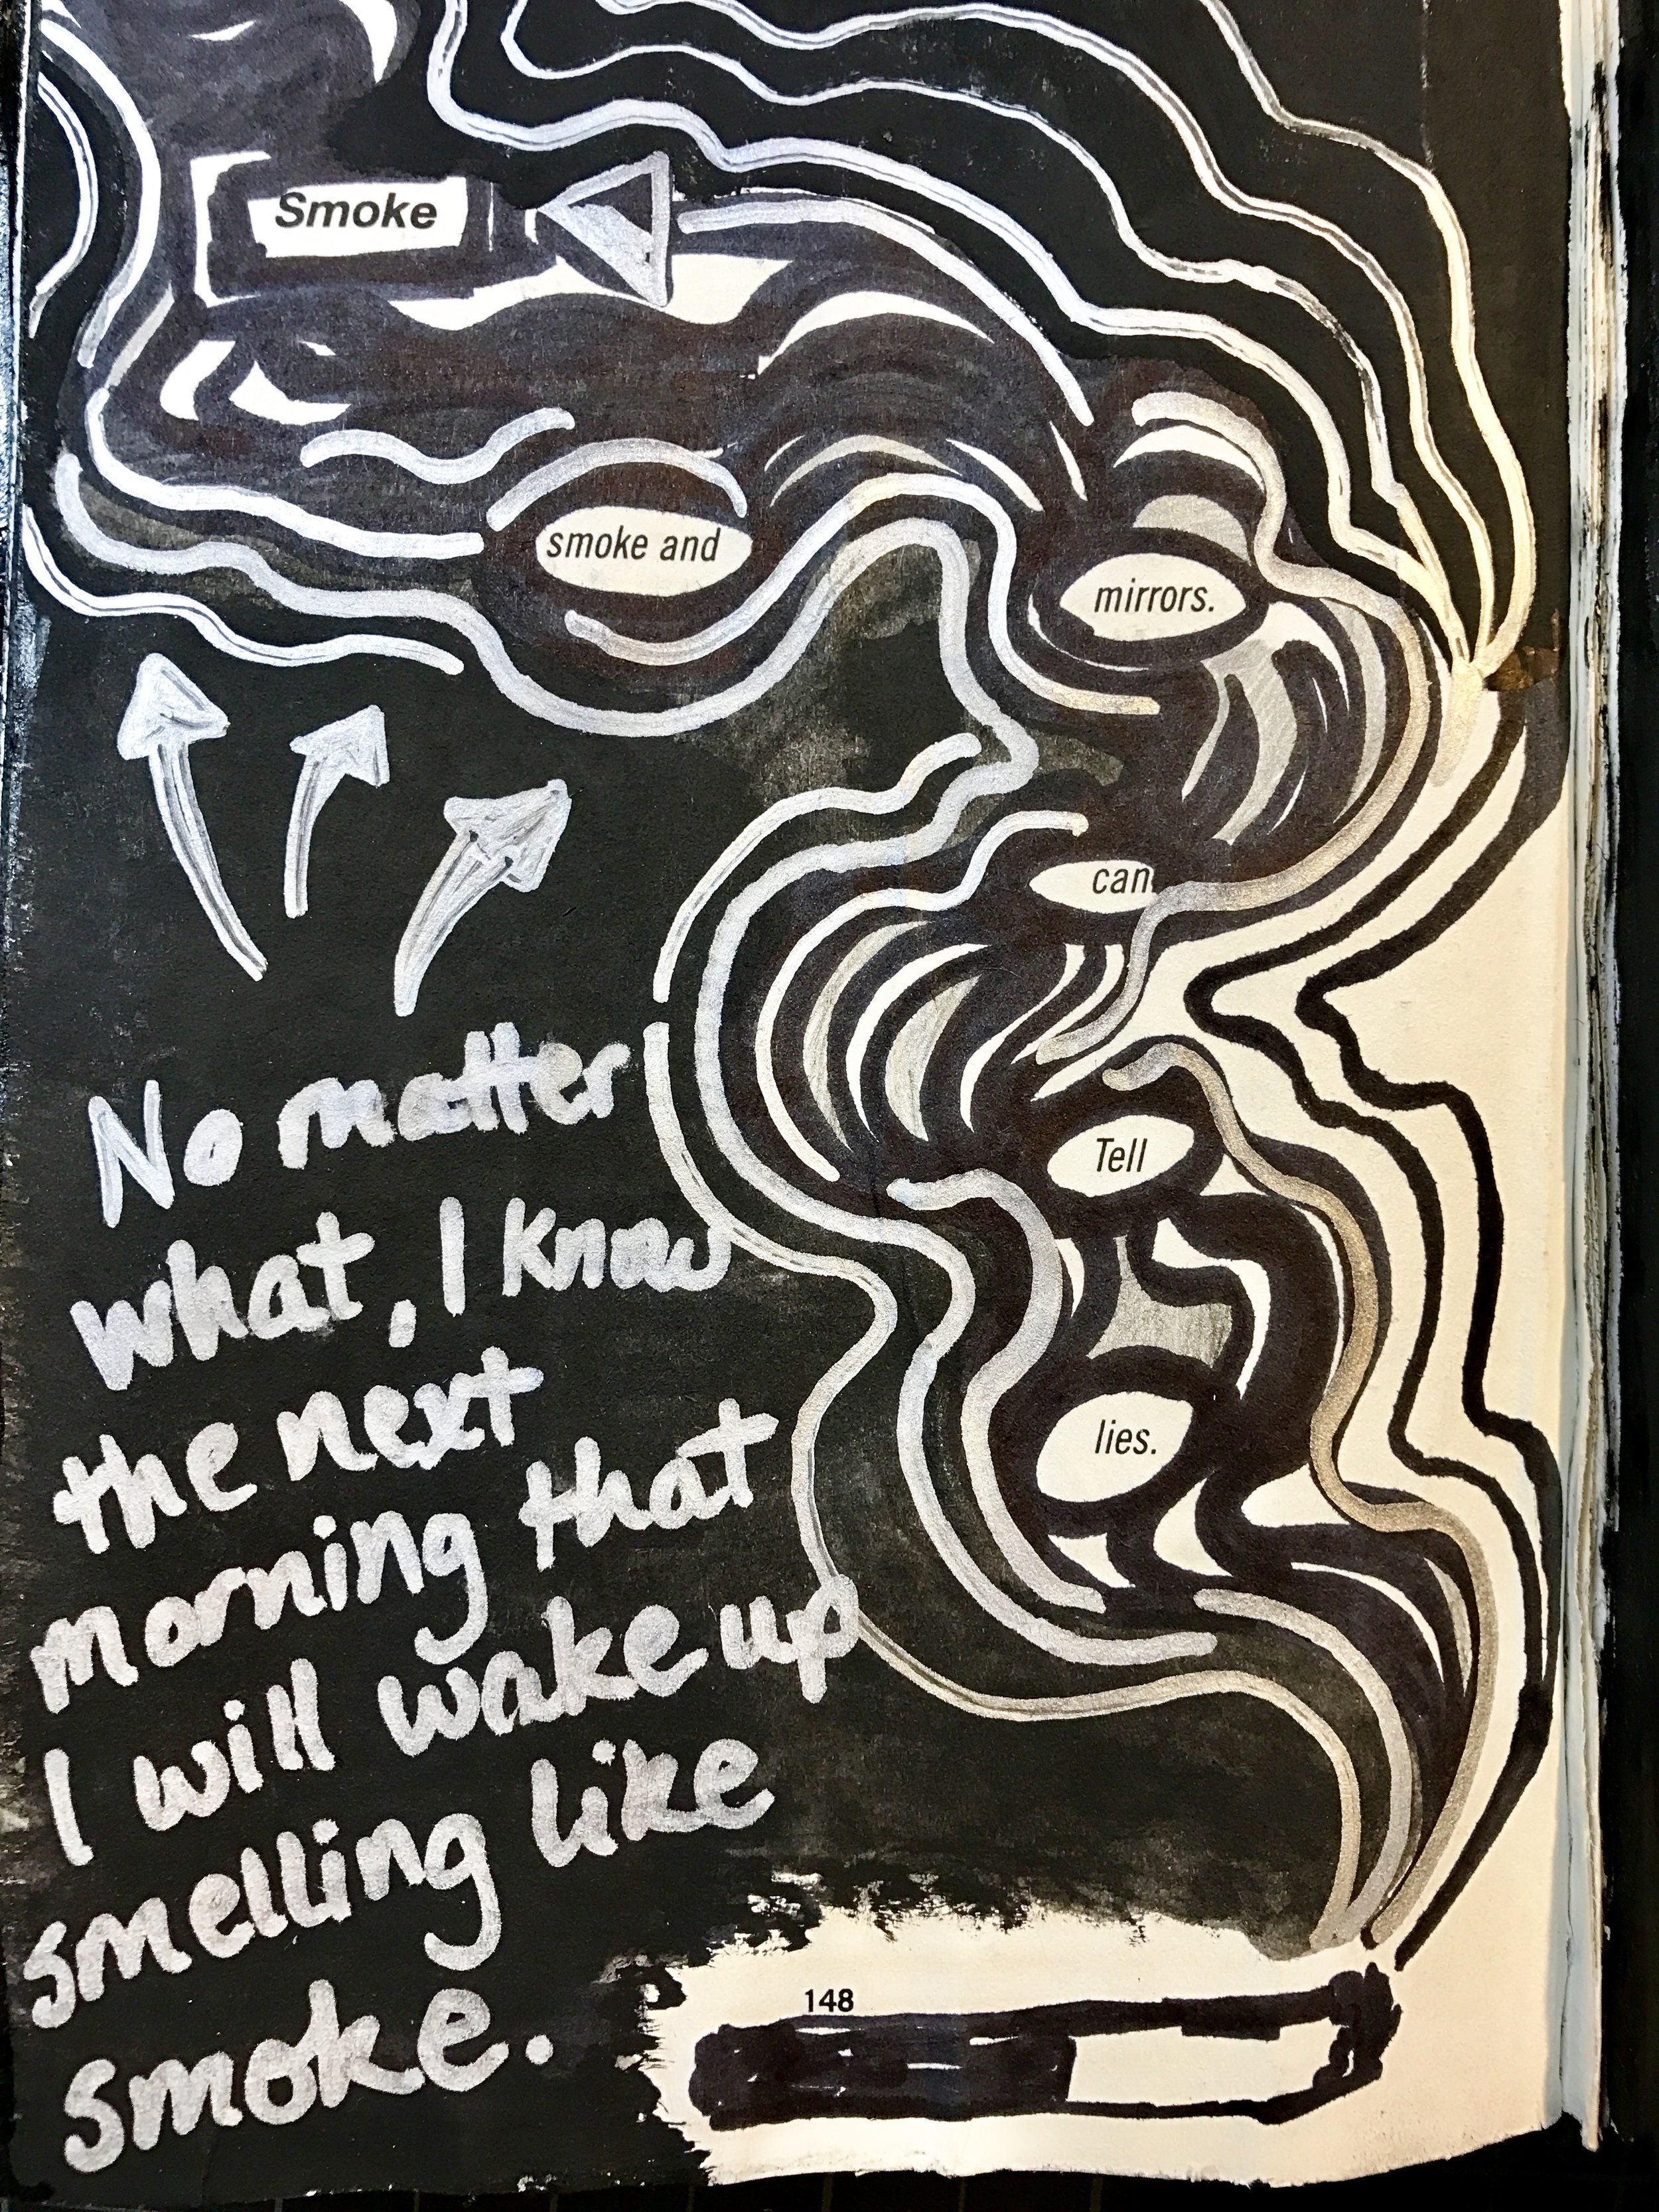 Smoke
smoke and
mirrors.
can
Tell
lies.
No matter
what, I know
the next
morning that
I will wake up
smelling like
smoke.
148